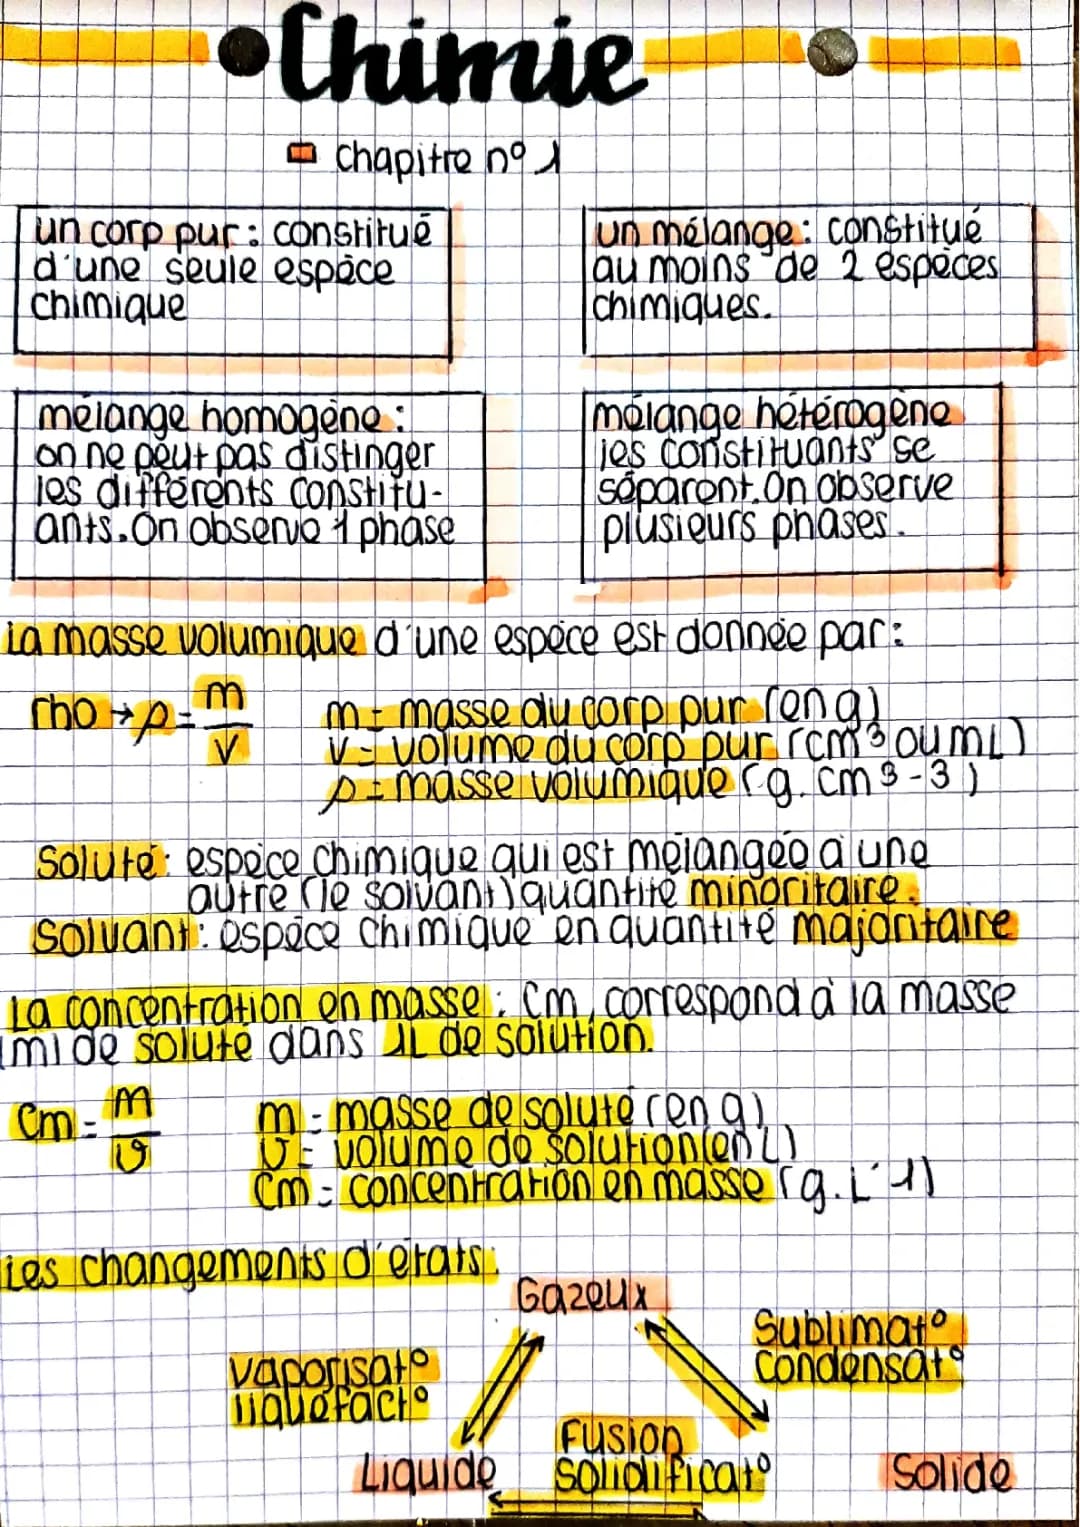 Chimie
chapitre n° 1
un corp pur : constitué
d'une seule espèce
chimique
un mélange : constitué
au moins de 2 espèces
chimiques.
mélange homogène :
on ne peut pas distinger
les différents constitu-
ants. On observe 1 phase
mélange hétérogène
les constituants se
séparent. On observe
plusieurs phases.
La masse volumique d'une espèce est donnée par :
rho → ρ = m/v
m = masse du corp pur (en g)
v = volume du corp pur (cm3 ou mL)
ρ = masse volumique (g. cm3-3)
Soluté : espèce chimique qui est mélangée à une
autre (le solvant) quantité minoritaire.
Solvant : espèce chimique en quantité majoritaire
La concentration en masse : Cm, correspond à la masse
(m) de soluté dans 1L de solution.
Cm = m/v
m = masse de soluté (en g)
v = volume de solution (en L)
Cm = concentration en masse (g.L-1)
Les changements d'états :
Gazeux
Sublimat°
condensat°
vaporisat°
liquéfact°
Fusion
solidificat°
Liquide
Solide